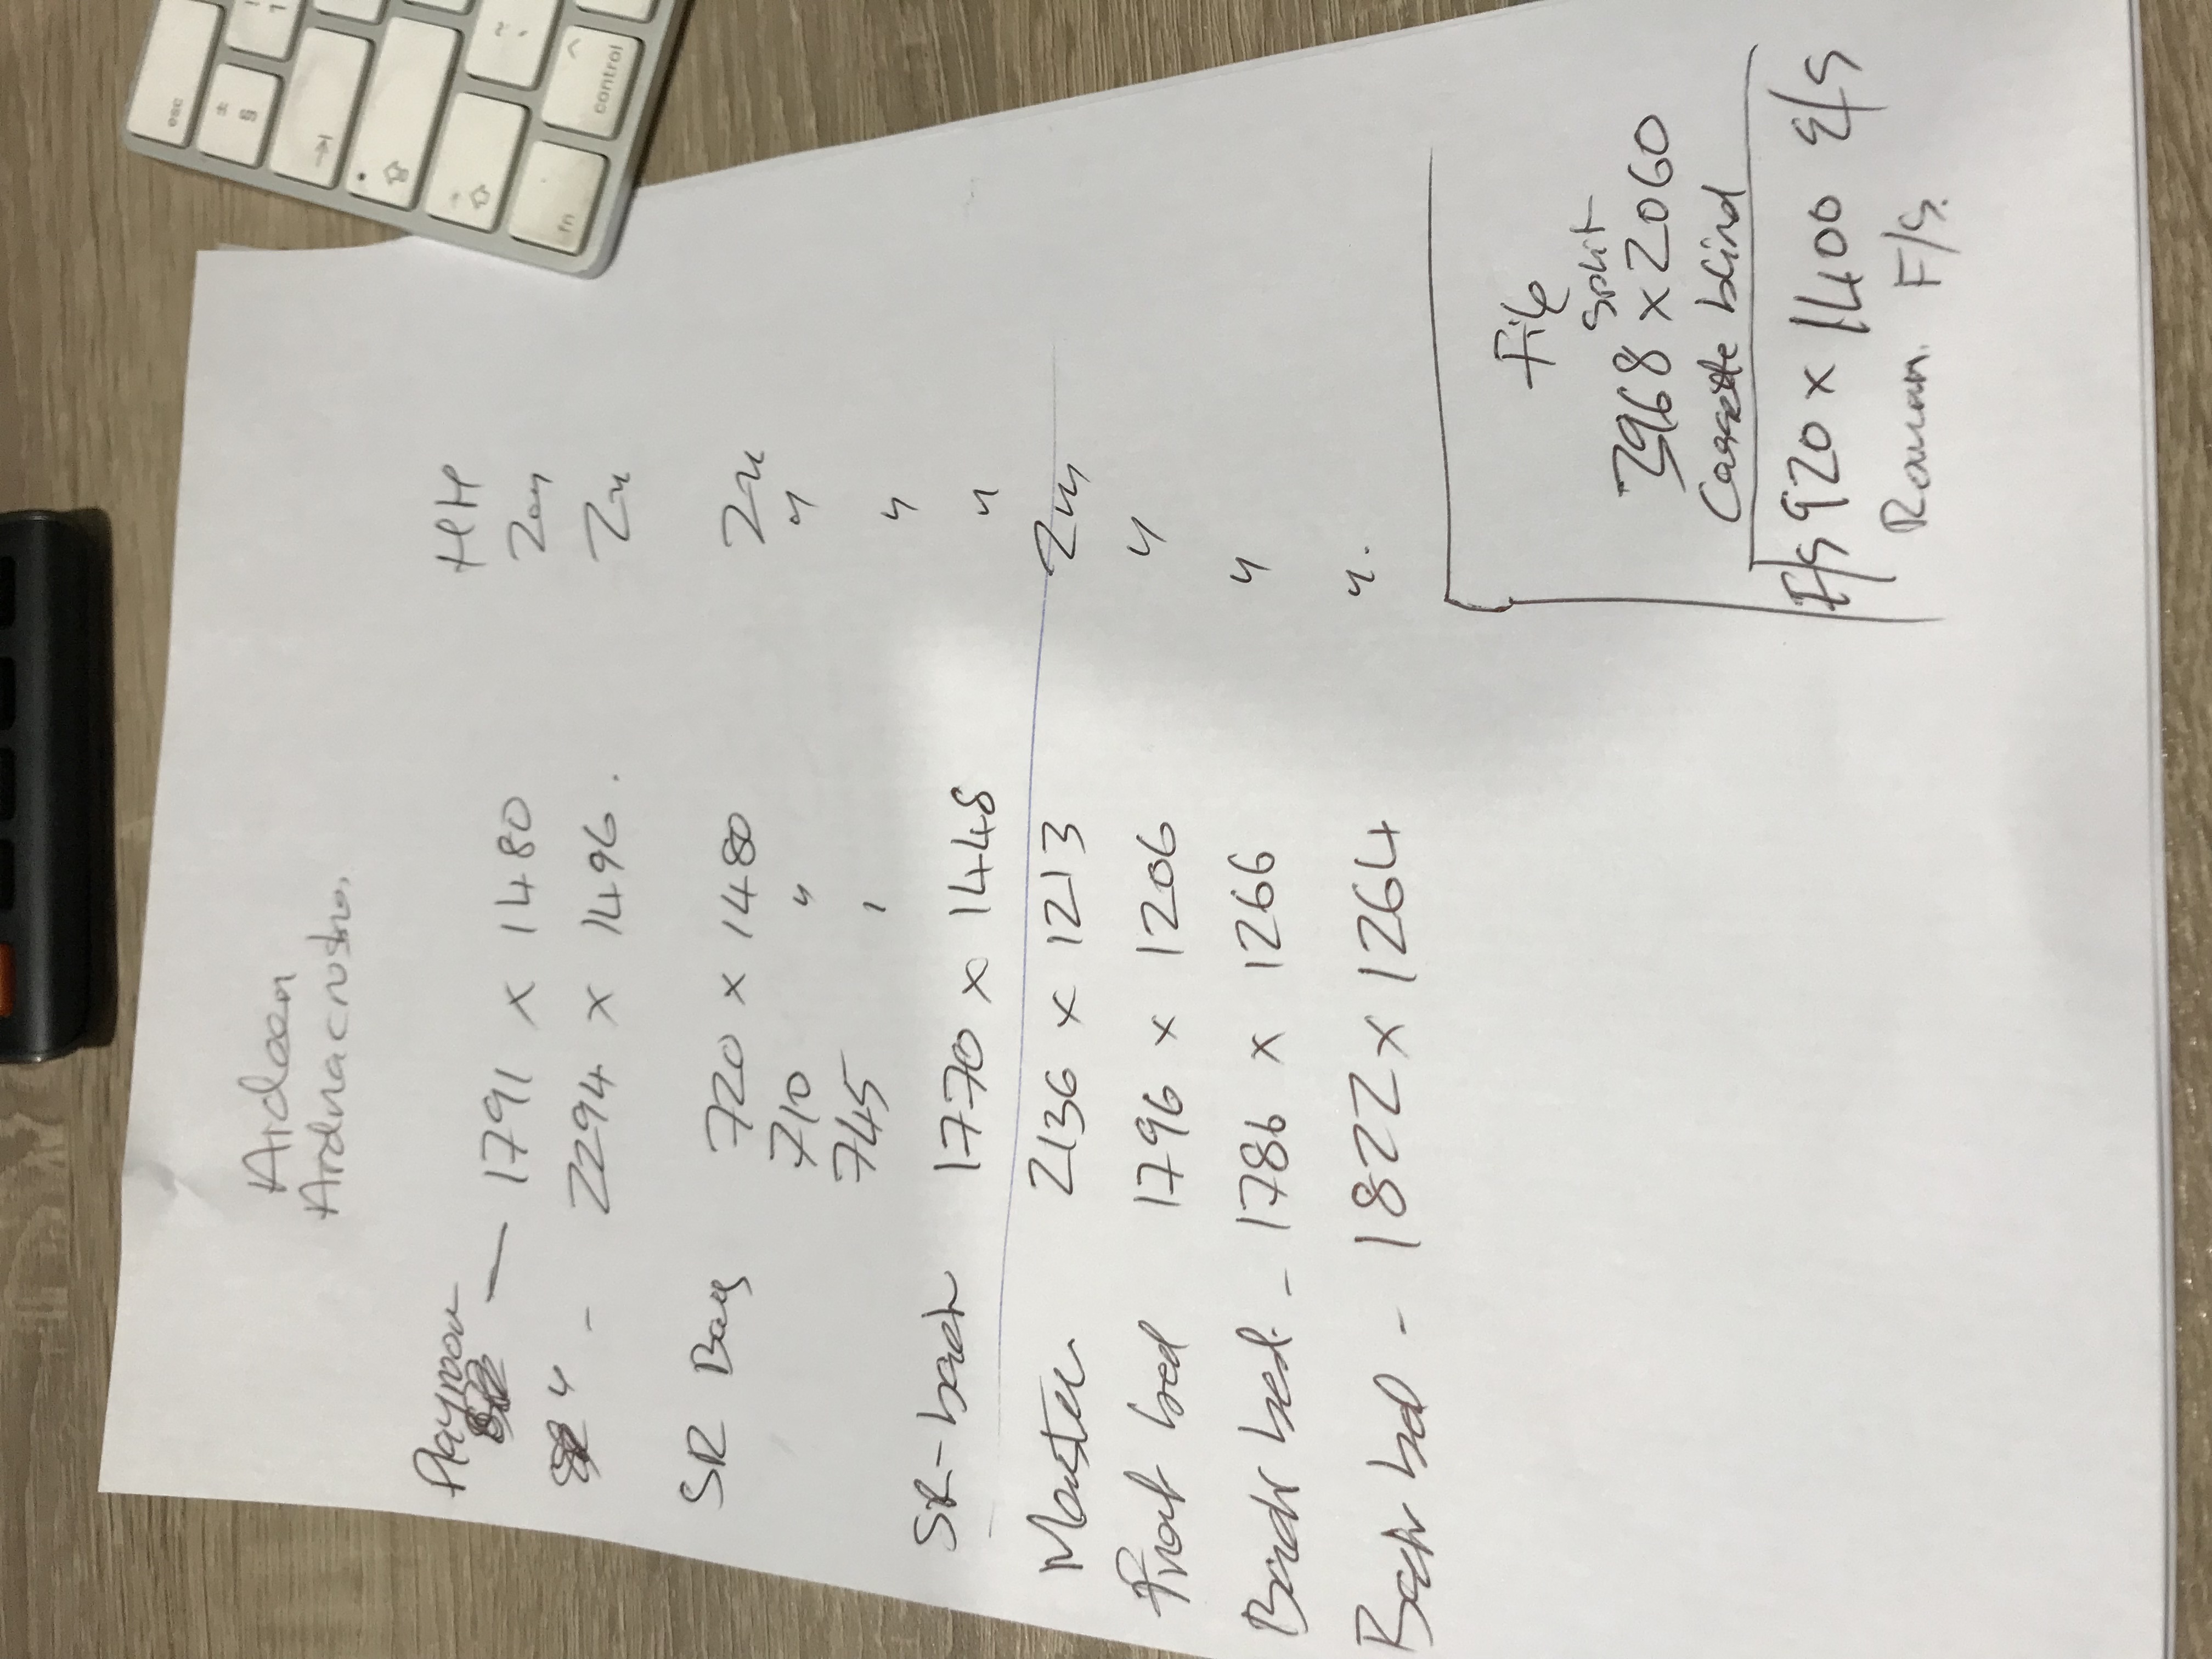 Aideen
Ardnacrusha.
Playroom HH
— 1791 x 1480 2m
" - 2294 x 1496. 2m
SR Bay 720 x 1480 2m
710 " "
745 ' "
SR-back 1770 x 1448 "
Master 2136 x 1213 2m
Front bed 1796 x 1206 "
Back bed. - 1786 x 1266 "
Back bed - 1822 x 1264 ".
File
Split
2968 x 2060
Cassette blind
F/S 920 x 1400 E/S
Roman. F/S.
esc
±
§
~
`
^
control
fn